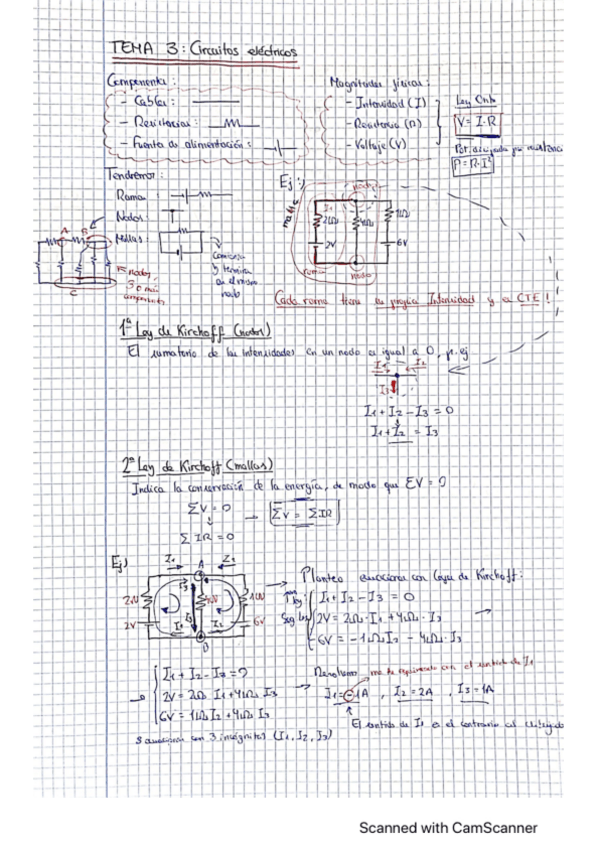 TEMA 3: Circuitos eléctricos
Componentes:
- Cables:
- Resistencias:
- Fuente de alimentación:
Magnitudes físicas:
- Intensidad (I)
- Resistencia (Ω)
- Voltaje (V)
Ley Ohm
V = I·R
Pot. disipada por resistencia
P = R·I²
Tendremos:
Rama:
Nodos:
Mallas:
Comienza y termina en el mismo nodo
A
B
C
nodos, 3 o más componentes
Ej:)
malla
nodo
I1
2Ω
4Ω
1Ω
2V
6V
rama
nodo
Cada rama tiene su propia Intensidad y es CTE!
1ª Ley de Kirchoff (nodos)
El sumatorio de las intensidades en un nodo es igual a 0, p. ej
I1
I2
I3
I1 + I2 - I3 = 0
I1 + I2 = I3
2ª Ley de Kirchoff (mallas)
Indica la conservación de la energía, de modo que ΣV = 0
ΣV = 0
ΣIR = 0
ΣV = ΣIR
Ej)
I1
A
I2
I3
2Ω
4Ω
1Ω
2V
6V
I1
I2
Planteo ecuaciones con Leyes de Kirchoff:
I1 + I2 - I3 = 0
2V = 2Ω·I1 + 4Ω·I3
-6V = -1Ω I2 - 4Ω·I3
I1 + I2 - I3 = 0
2V = 2Ω I1 + 4Ω I3
6V = 1Ω I2 + 4Ω I3
3 ecuaciones con 3 incógnitas (I1, I2, I3)
Resolvemos
me he equivocado con el sentido de I1
I1 = -1A, I2 = 2A, I3 = 1A
El sentido de I1 es el contrario al elegido
Scanned with CamScanner